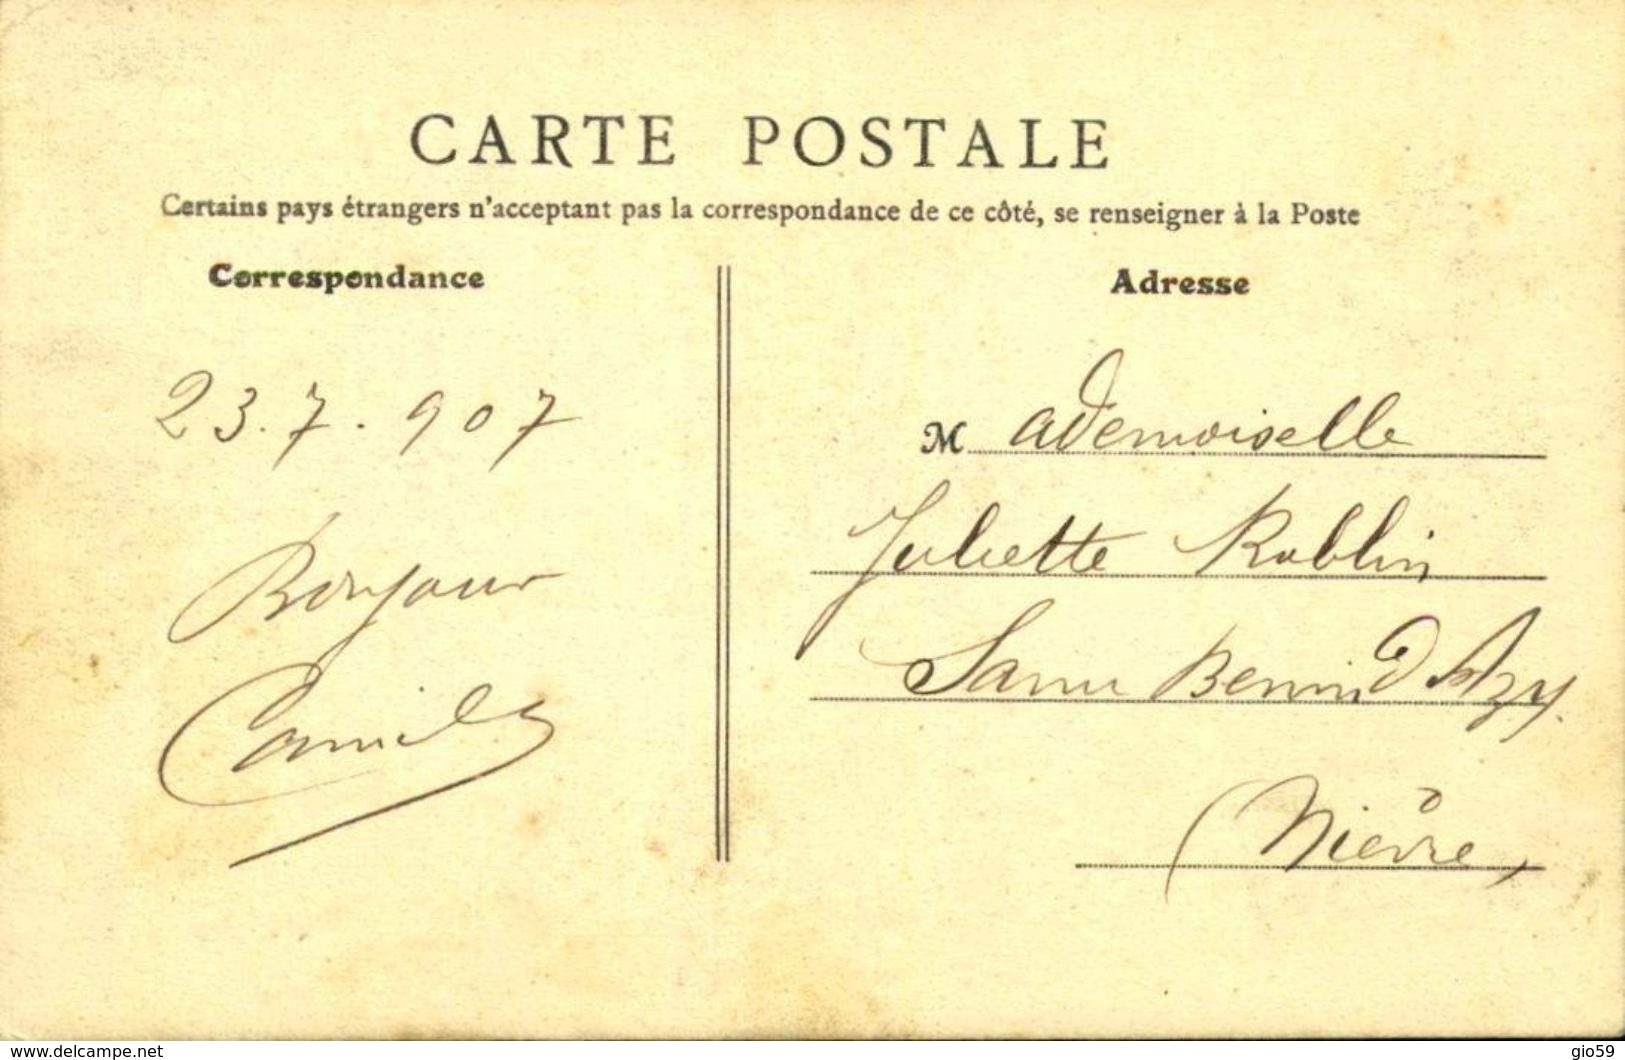 CARTE POSTALE
Certains pays étrangers n'acceptant pas la correspondance de ce côté, se renseigner à la Poste
Correspondance
23.7.907
Bonjour
Camille
Adresse
Mademoiselle
Juliette Roblin
d'Azy
(Nièvre)
www.delcampe.net
gio59